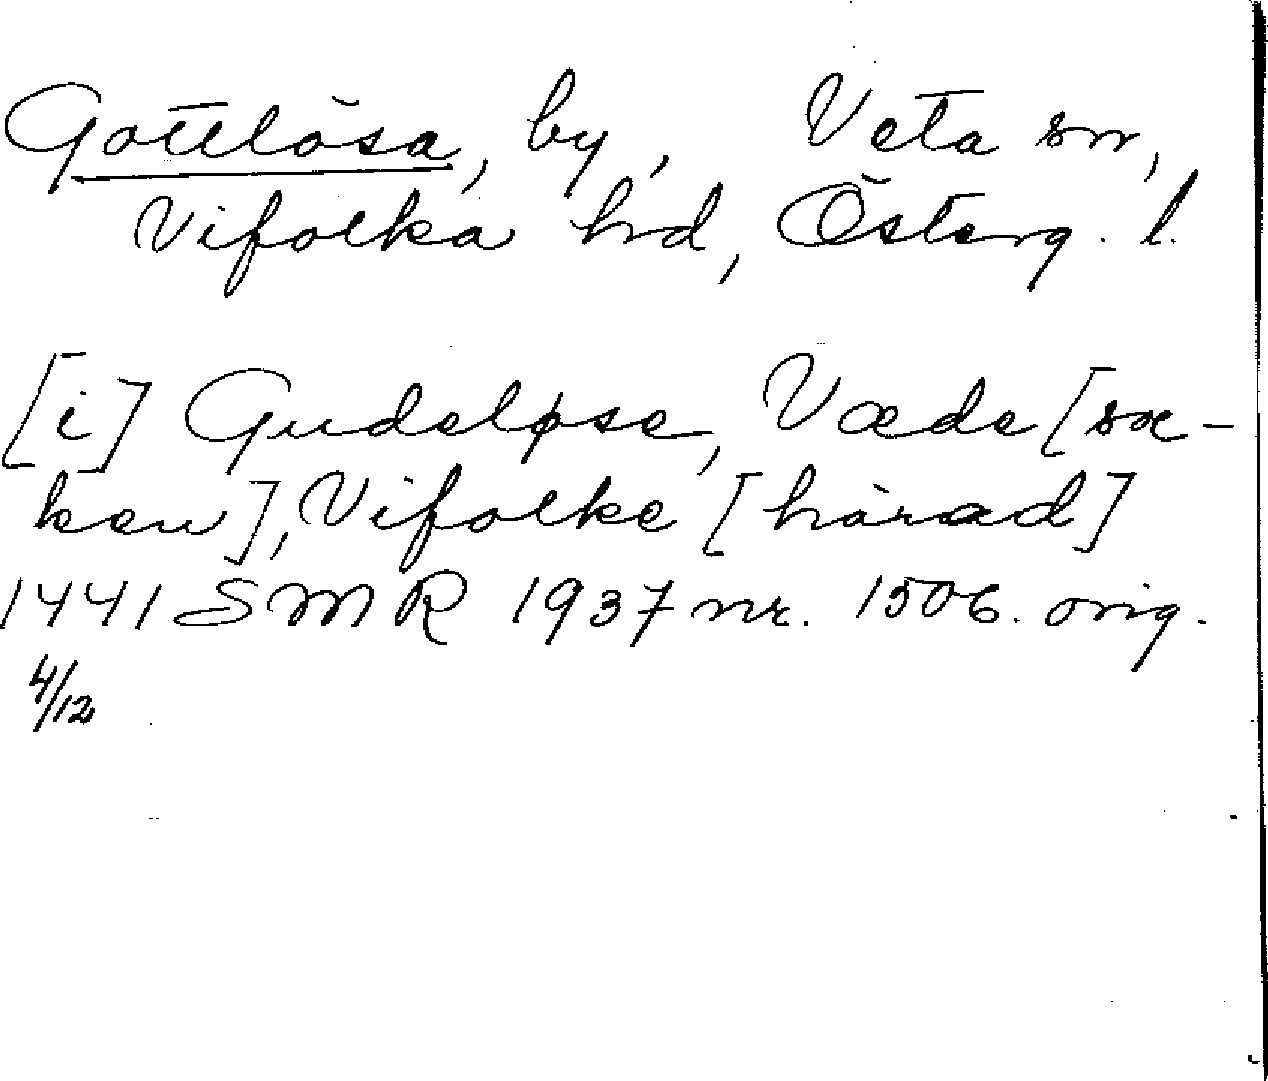 Gottlösa, by, Veta sn,
Vifolka hd, Österg. l.
[i] Gudeløse, Væde [soc-
ken], Vifolke [härad]
1441 SMR 1937 nr. 1506. orig.
4/12